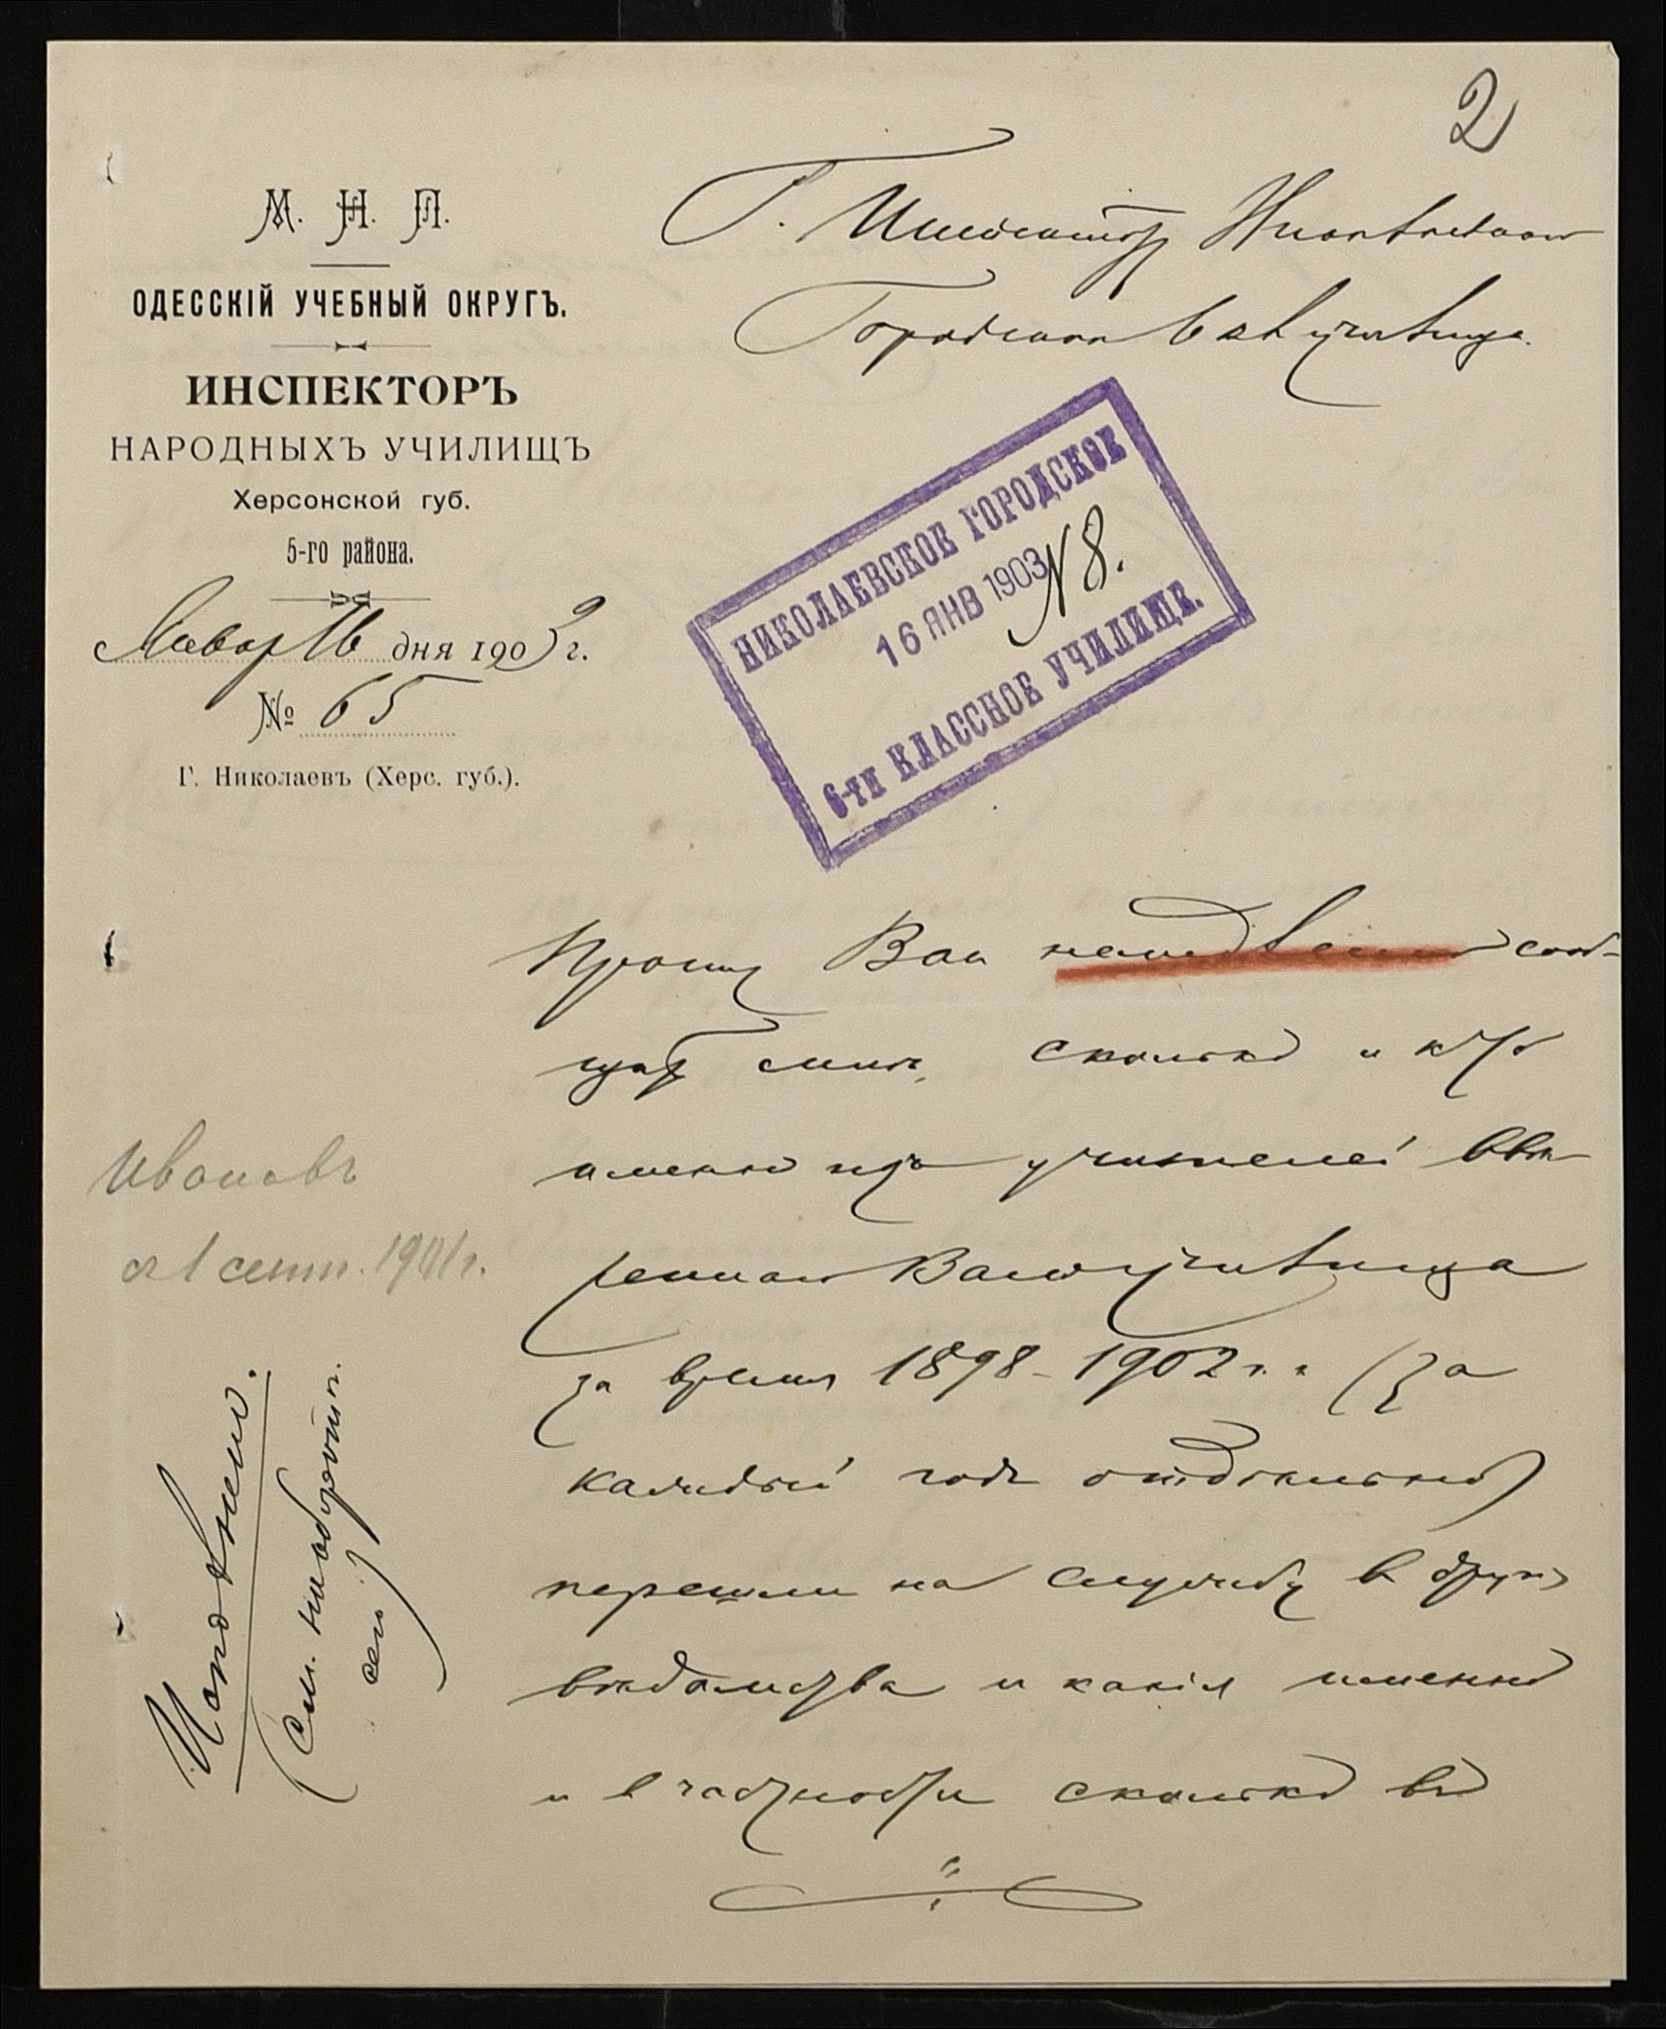 2
М. Н. П.
ОДЕССКІЙ УЧЕБНЫЙ ОКРУГЪ.
ИНСПЕКТОРЪ
НАРОДНЫХЪ УЧИЛИЩЪ
Херсонской губ.
5-го района.
Январ 16 дня 1903 г.
№ 65
Г. Николаевъ (Херс. губ.).
Г. Инспектору Николаевскаго
Городского 6 кл училища.
НИКОЛАЕВСКОЕ ГОРОДСКОЕ
16 ЯНВ 1903
N 8.
6-ТИ КЛАССНОЕ УЧИЛИЩЕ.
Прошу Вас немедленно сооб-
щить мнѣ, сколько и кто
именно изъ учителей ввѣ-
реннаго Вамъ училища
за время 1898-1902 г.г. (за
каждый годъ отдѣльно)
перешли на службу в другія
вѣдомства и какія именно
и в частности сколько во
Ивановъ
съ 1 сент. 1901 г.
Исполнено.
(См. на оборотѣ
сего)